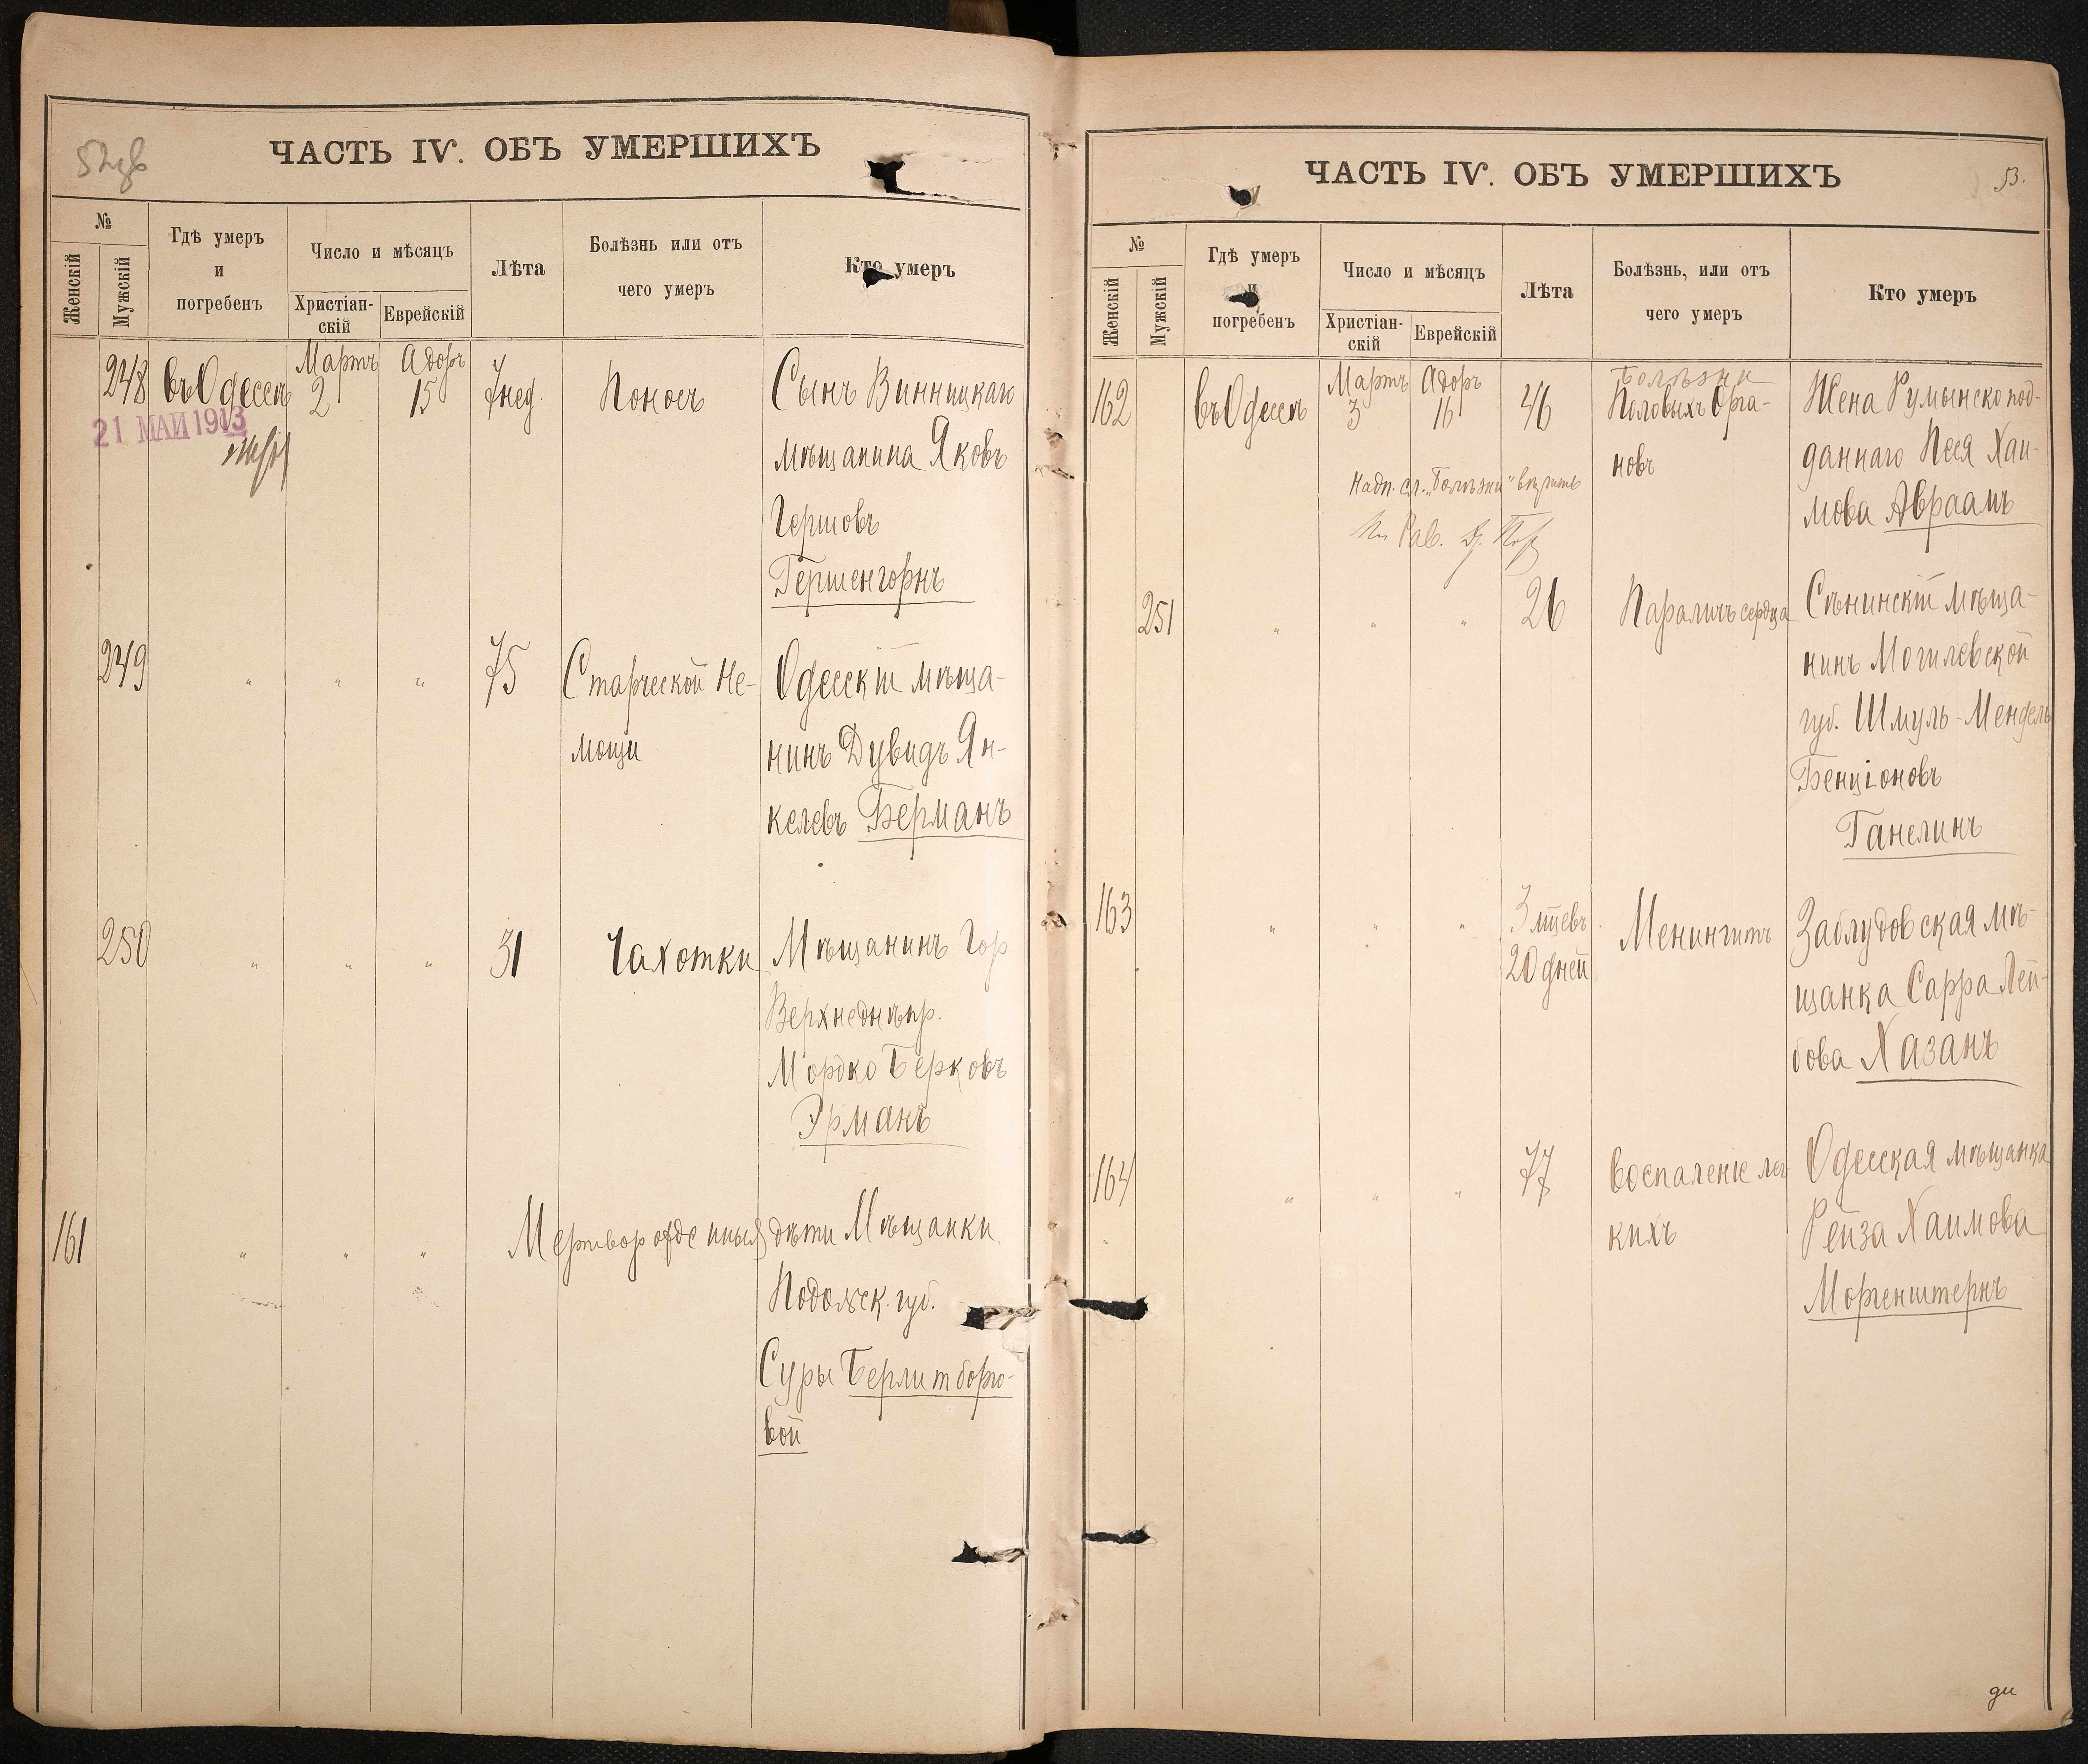 52об
ЧАСТЬ IV. ОБЪ УМЕРШИХЪ
№
Женскій
Мужскій
Гдѣ умеръ
и
погребенъ
Число и мѣсяцъ
Христіан-
скій
Еврейскій
Лѣта
Болѣзнь или отъ
чего умеръ
Кто умеръ
248
въ Одессѣ
Мартъ
2
Адоръ
15
7 нед.
Поносъ
Сынъ Винницкаго
мѣщанина Яковъ
Гершовъ
Гершенгорнъ
21 МАЙ 1913
249
"
"
"
75
Старческой Не-
мощи
Одесскій мѣща-
нинъ Дувидъ Ян-
келевъ Берманъ
250
"
"
"
31
Чахотки
Мѣщанинъ Гор.
Верхнеднѣпр.
Мордко Берковъ
Эрманъ
161
"
"
"
Мертворожденныя дѣти Мѣщанки
Подольск. губ.
Суры
вой
ЧАСТЬ IV. ОБЪ УМЕРШИХЪ
53.
№
Женскій
Мужскій
Гдѣ умеръ
и
погребенъ
Число и мѣсяцъ
Христіан-
скій
Еврейскій
Лѣта
Болѣзнь, или отъ
чего умеръ
Кто умеръ
162
въ Одессѣ
Мартъ
3
Адоръ
16
46
Болѣзни
Половыхъ Орга-
новъ
Жена Румынскопод-
даннаго Песя Хаи-
мова Авраамъ
Надп. сл. "Болѣзни" вѣрить
Рав.
251
"
"
"
26
Параличъ сердца
Сѣнинскій мѣща-
нинъ Могилевской
губ. Шмуль-Мендель
Бенціоновъ
Ганелинъ
163
"
"
"
3 мцевъ
20 дней
Менингитъ
Заблудовская мѣ-
щанка Сарра Лей-
бова Хазанъ
164
"
"
"
77
Воспаленіе лег-
кихъ
Одесская мѣщанка
Рейза Хаимова
Моргенштернъ
ди